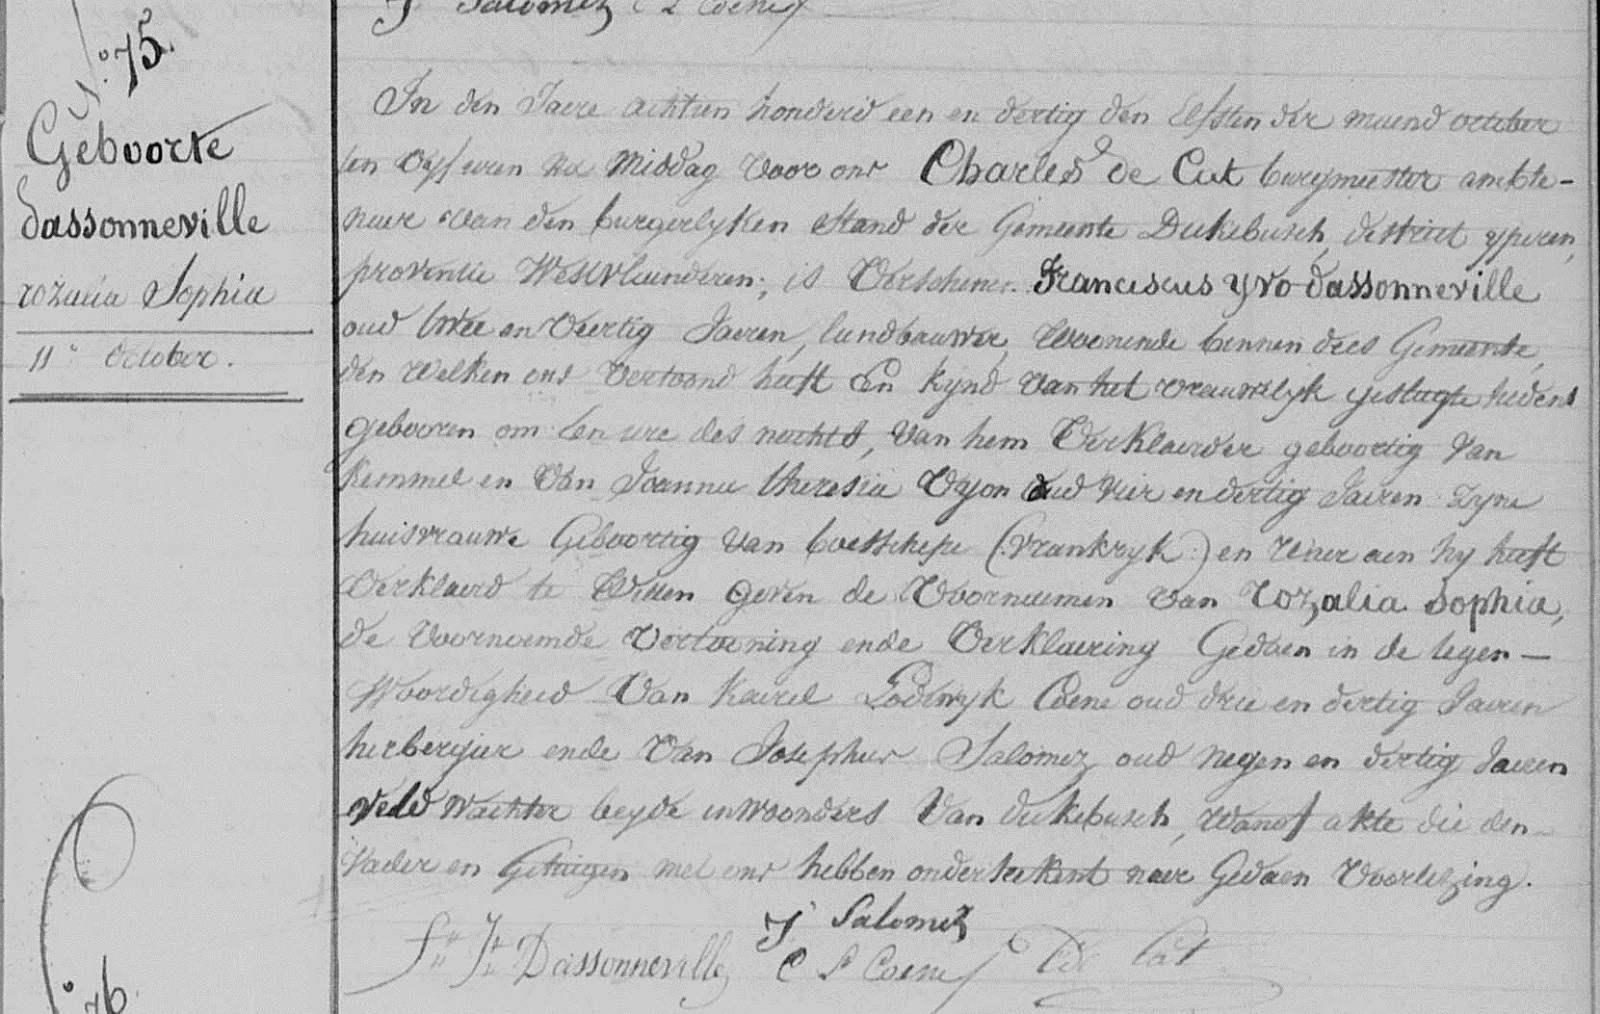 J Salomez C L Coene
N.° 75.
Geboorte
dassonneville
rozalia Sophia
11° october.
In den Jaere achtien honderd een en dertig den Elfsten der maend october
ten vyf uren na middag voor ons Charles de Cat burgmeester ambte-
naer van den burgerlyken stand der Gemeente Dickebusch, destrict yperen,
provintie Westvlaenderen; is Verschenen Franciscus yvo dassonneville
oud twee en Veertig Jaeren, landbauwer, Woonende binnen dees Gemeente,
den Welken ons Vertoond heeft Een kynd van het vrauwelyk geslagte hedens
gebooren om een ure des nachts, van hem Verklaerder geboortig van
Kemmel en Van Joanna theresia Oyon oud vier en dertig Jaeren Zyne
huisvrauwe Geboortig van boesschepe (Vrankryk) en wier aen hy heeft
Verklaerd te Willen geven de Voornaemen van rozalia Sophia,
de voornoemde vertooning ende Verklaering Gedaen in de tegen-
Woordigheid Van karel Lodewyk Coene oud drie en dertig Jaeren
herbergier ende Van Josephus Salomez oud negen en dertig Jaeren
veld wachter beyde inwoonders Van dickebusch, wanof akte die den
vader en Getuigen met ons hebben onderteekent naer Gedaen Voorlezing.
J Salomez
Fs Yv Dassonneville C L Coene C de Cat
° 76.